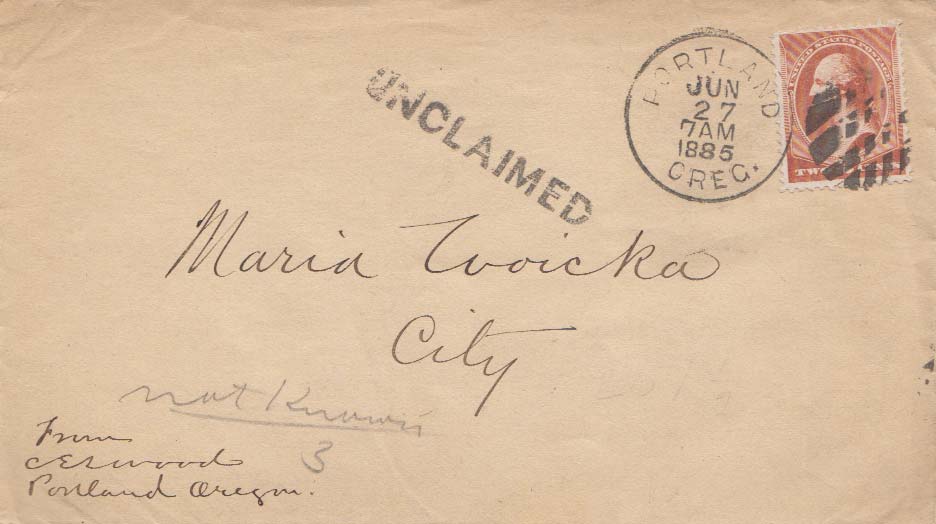 UNCLAIMED
PORTLAND
JUN
27
7AM
1885
OREG.
UNITED STATES POSTAGE
TWO
Maria Woicka
City
not Known
3
From
Portland Oregon.